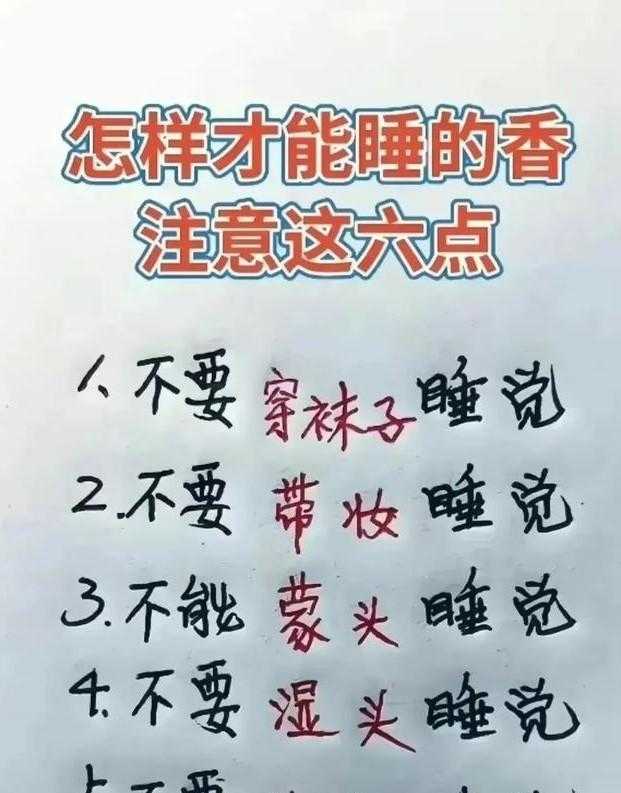 怎样才能睡的香
注意这六点
1、不要穿袜子睡觉
2.不要带妆睡觉
3.不能蒙头睡觉
4.不要湿头睡觉
不要